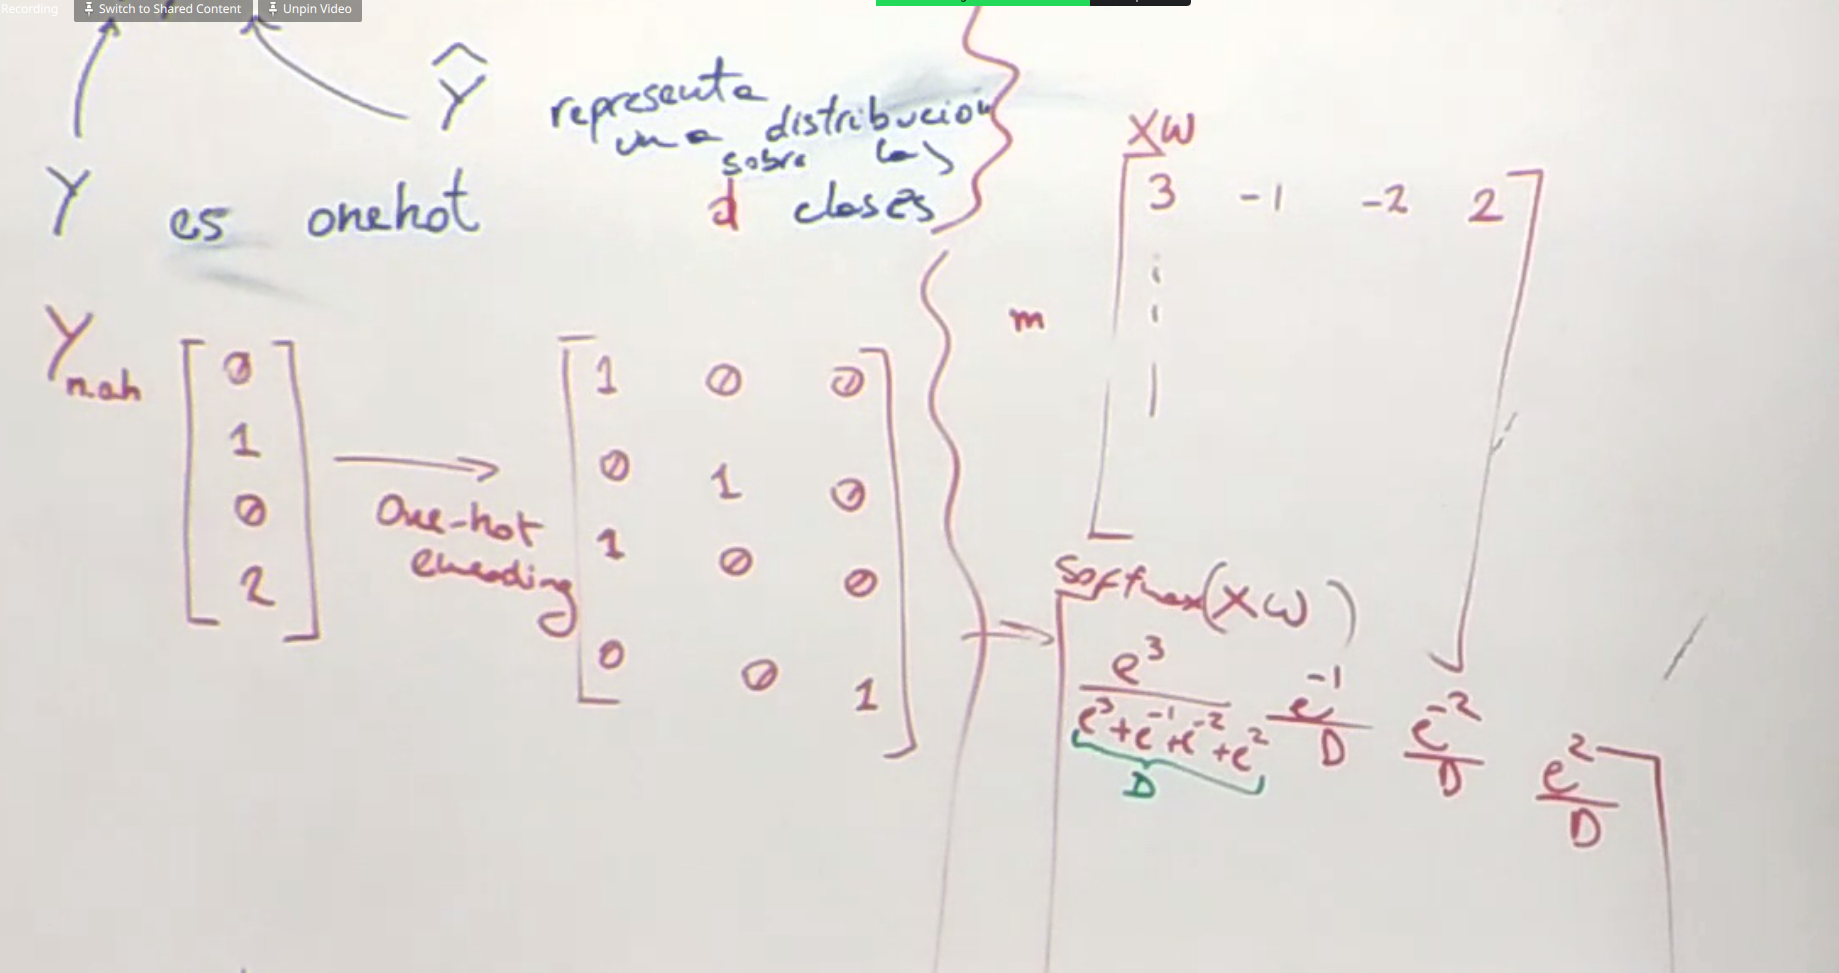 Recording
Switch to Shared Content
Unpin Video
Ŷ representa
una distribucion
sobre las
d clases
Y es onehot
Y
[ 0
1
0
2 ]
One-hot
encoding
[ 1 0 0
0 1 0
1 0 0
0 0 1 ]
XW
m
[ 3 -1 -2 2 ]
Softmax(XW)
e^3 / (e^3 + e^-1 + e^-2 + e^2) e^-1 / D e^-2 / D e^2 / D
D